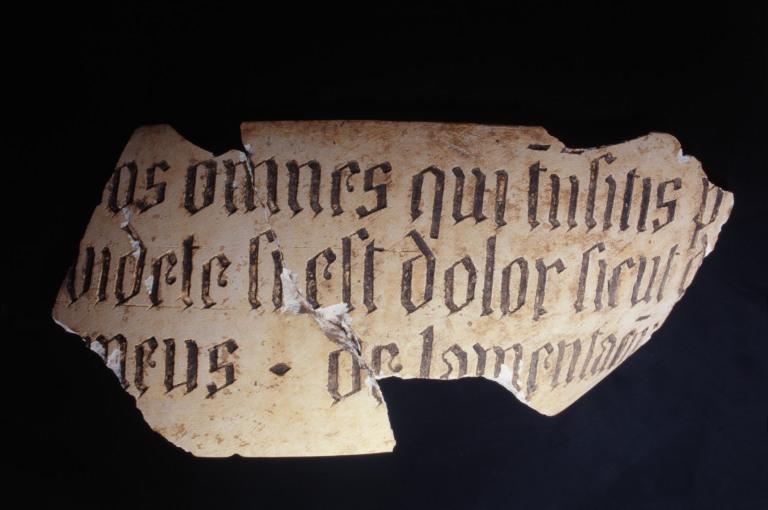 os omnes qui t̄nsitis p
videte si est dolor sicut d
meus · de lamentac̄